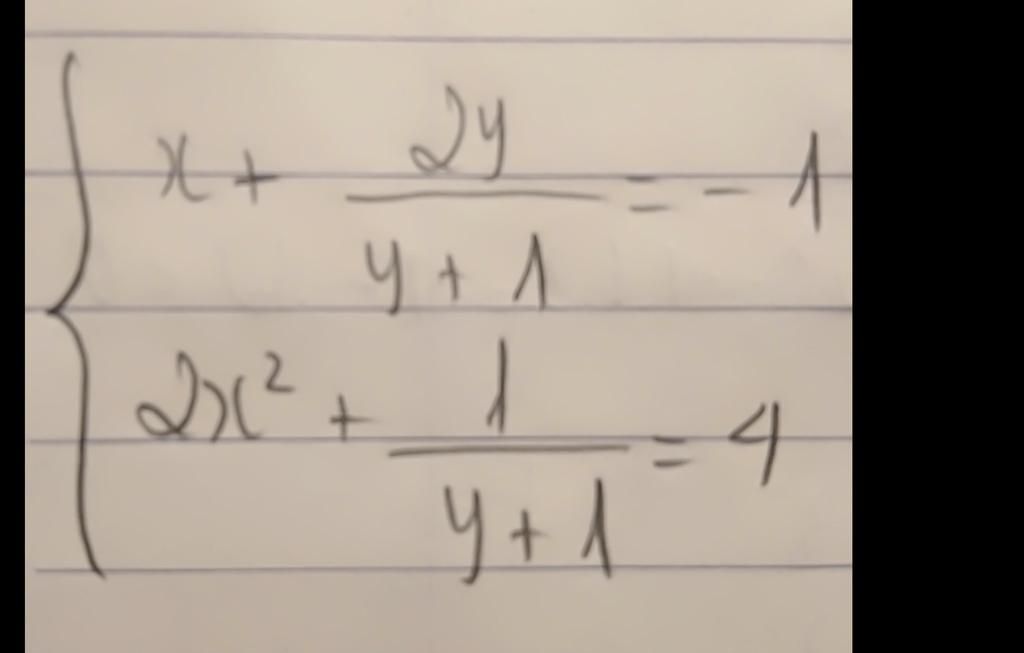 x + 2y/(y + 1) = - 1
2x² + 1/(y + 1) = 4